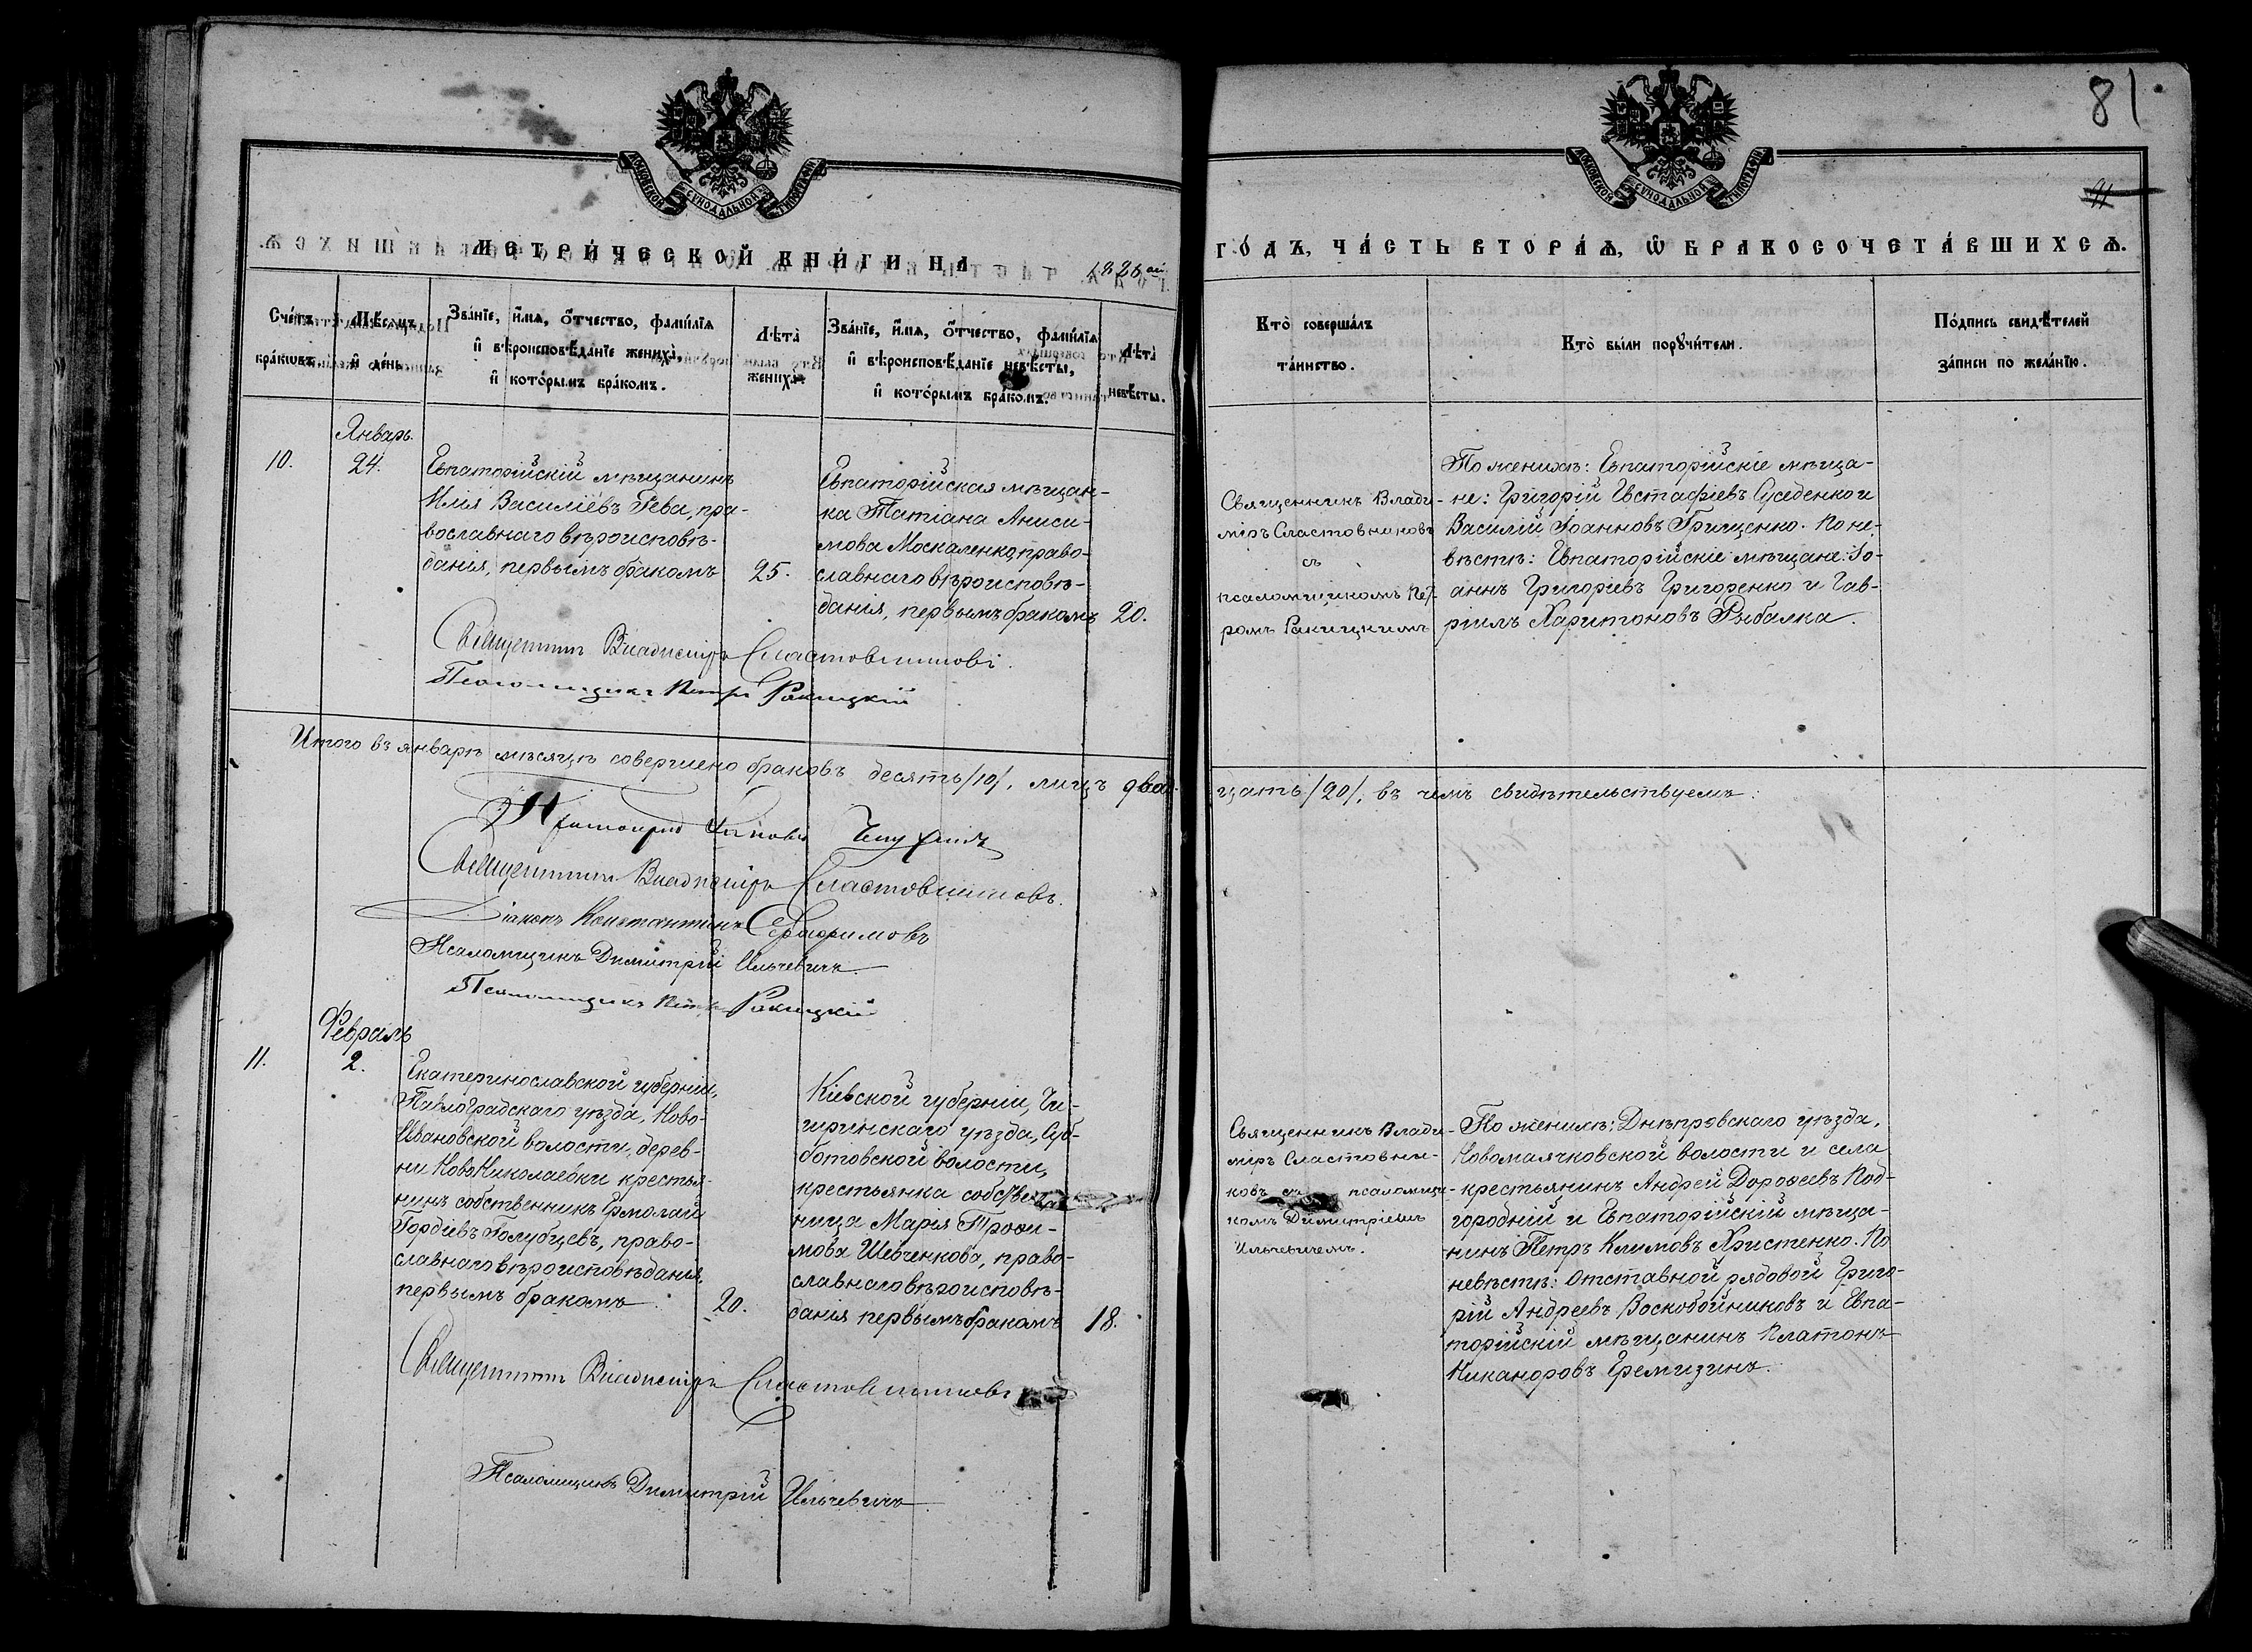 81
МОСКОВСКОЙ СѴНОДАЛЬНОЙ ТИПОГРАФІИ
МОСКОВСКОЙ СѴНОДАЛЬНОЙ ТИПОГРАФІИ
МЕТРИ́ЧЕСКОЙ КНИ́ГИ НА
ГО́ДЪ, ЧА́СТЬ ВТОРА́Ѧ, Ѡ БРАКОСОЧЕТА́ВШИХСѦ.
Сче́тъ
бра́ковъ.
Мѣ́сѧцъ
и҆ де́нь.
Зва́нїе, и҆́мѧ, ѻ҆́тчество, фамѝлїѧ
и҆ вѣроисповѣ́данїе жениха̀,
и҆ кото́рымъ бра́комъ.
Лѣта̀
жениха̀.
Зва́нїе, и҆́мѧ, ѻ҆́тчество, фамѝлїѧ
и҆ вѣроисповѣ́данїе невѣ́сты,
и҆ кото́рымъ бра́комъ.
Лѣта̀
невѣ́сты.
Кто̀ соверша́лъ
та́инство.
Кто̀ были порꙋчи́тели.
По́дпись свидѣ́телей
за́писи по жела́нїю.
Январь.
10.
24.
Евпаторійскій мѣщанинъ
Илія Василіевъ Рева, пра-
вославнаго вѣроисповѣ-
данія, первымъ бракомъ
25.
Евпаторійская мѣщан-
ка Татіана Аниси-
мова Москаленко, право-
славнаго вѣроисповѣ-
данія, первымъ бракомъ
20.
Священникъ Влади-
міръ Сластовниковъ
съ
псаломщикомъ Пет-
ромъ Ракицкимъ
По женихѣ: Евпаторійскіе мѣща-
не: Григорій Евстафіевъ Суеденко и
Василій Іоанновъ Грищенко. По не-
вѣстѣ: Евпаторійскіе мѣщане: Іо-
аннъ Григорьевъ Григоренко и Гав-
ріилъ Харитоновъ Рыбалка.
Священникъ Владиміръ Сластовниковъ.
Псаломщикъ Петръ Ракицкій
Итого въ январѣ мѣсяцѣ совершено браковъ десять /10/, лицъ двад-
цать /20/, въ чемъ свидѣтельствуемъ:
Священникъ Владиміръ Сластовниковъ.
Діаконъ Константинъ Серафимовъ
Псаломщикъ Димитрій Ильчевичъ
Псаломщикъ Петръ Ракицкій
Февраль
11.
2.
Екатеринославской губерніи,
Павлоградскаго уѣзда, Ново-
Ивановской волости, дерев-
ни Ново Николаевки крестья-
нинъ собственникъ Ермолай
Гордѣевъ Голубцевъ, право-
славнаго вѣроисповѣданія,
первымъ бракомъ
20.
Кіевской губерніи, Чи-
гиринскаго уѣзда, Суб-
ботовской волости,
крестьянка собствен-
ница Марія Трофи-
мова Шевченкова, право-
славнаго вѣроисповѣ-
данія первымъ бракомъ
18.
Священникъ Влади-
міръ Сластовни-
ковъ съ псаломщи-
комъ Димитріемъ
Ильчевичемъ.
По женихѣ: Днѣпровскаго уѣзда,
Новомаячковской волости и села
крестьянинъ Андрей Дороѳеевъ Под-
городній и Евпаторійскій мѣща-
нинъ Петръ Климовъ Христенко. По
невѣстѣ: Отставной рядовой Григо-
рій Андреевъ Воскобойниковъ и Евпа-
торійскій мѣщанинъ Платонъ
Никаноровъ Еремизинъ.
Священникъ Владиміръ Сластовниковъ
Псаломщикъ Димитрій Ильчевичъ